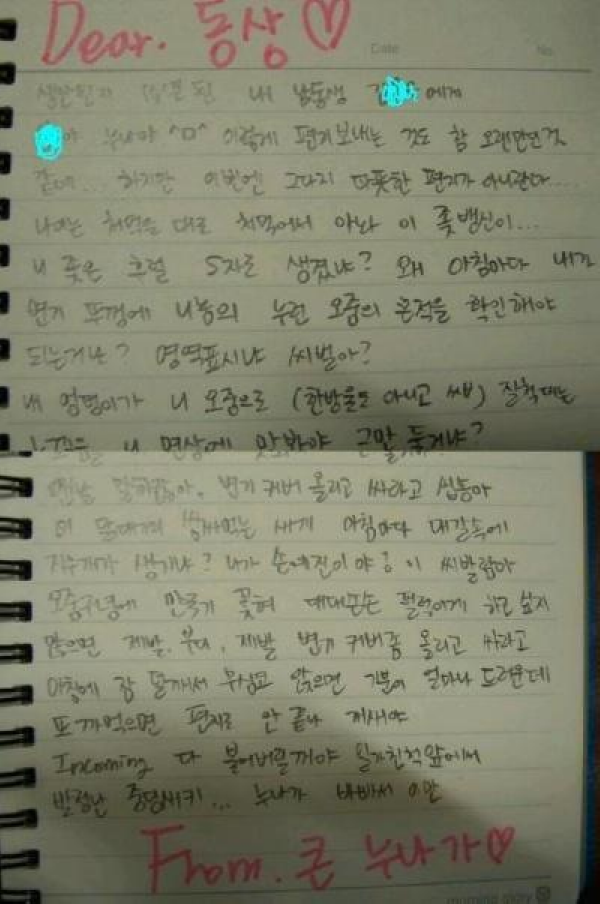 Dear. 동상♡
Date No.
내 남동생 에게
야 누나야 ^ㅁ^ 이렇게 편지보내는 것도 참 오랜만인것
같네... 하지만 이번엔 그다지 따뜻한 편지가 아니란다...
이 좆뱅신이...
니 좆은 흐럴 S자로 생겼냐? 왜 아침마다 내가
변기 뚜껑에 니놈의 누런 오줌의 흔적을 확인해야
되는거냐? 영역표시냐 씨벌아?
내 엉덩이가 니 오줌으로 (한방울도 아니고 씨ㅂ) 질척대는
니 면상에 맛봐야 그만둘거냐?
맨날 말하잖아. 변기 커버 올리고 싸라고 씹놈아
아침마다 대갈속에
지우개가 생기냐? 나가 손예진이야? 이 씨발람아
오줌구녕에 만국기 꽂혀 대대손손 펄럭이게 하고 싶지
않으면 제발, 부디, 제발 변기 커버좀 올리고 싸라고
아침에 잠 덜깨서 무심코 앉으면 기분이 얼마나 드러운데
또 까먹으면 편지로 안 끝나
Incoming 다 불어버릴꺼야 일가친척앞에서
발정난 중딩새키... 누나가 바빠서 이만
From. 큰 누나가♡